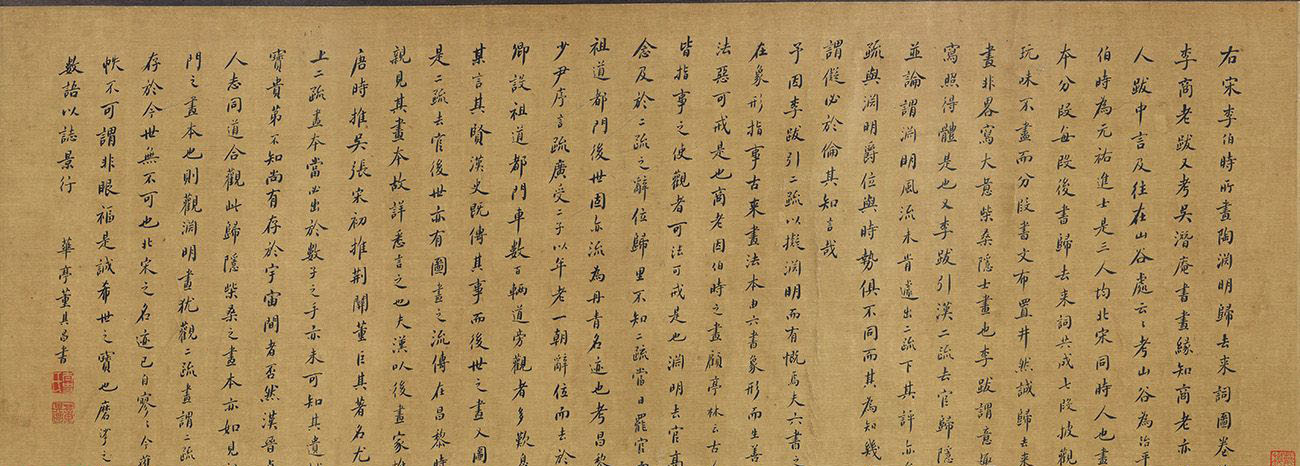 右宋李伯時所畫陶淵明歸去來詞圖卷
李商老跋又考吳潛庵書畫緣知商老亦
人跋中言及往在山谷處云々考山谷為治平
伯時為元祐進士是三人均北宋同時人也畫
本分段每段後書歸去來詞共成七段披觀
玩味不盡而分段書文布置井然誠歸去來
畫非畧寫大意柴桑隱士畫也李跋謂意極
寫照得體是也又李跋引漢二疏去官歸隱
並論謂淵明風流未肯遽出二疏下其評亦
疏與淵明爵位與時勢俱不同而其為知幾
謂儗必於倫其知言哉
予因李跋引二疏以擬淵明而有慨焉夫六書之
在象形指事古來畫法本由六書象形而生善
法惡可戒是也商老因伯時之畫顧亭林云古人
皆指事之使觀者可法可戒是也淵明去官高
念及於二疏之辭位歸里不知二疏當日罷官
祖道都門後世固亦流為丹青名迹也考昌黎
少尹序言疏廣受二子以年老一朝辭位而去於
卿設祖道都門車數百輛道旁觀者多歎息
其言其賢漢史既傳其事而後世之畫又圖
是二疏去官後世亦有圖畫之流傳在昌黎時
親見其畫本故詳悉言之也夫漢以後畫家
唐時推吳張宋初推荆關董巨其著名尤
上二疏畫本當必出於數子之手亦未可知其遺
寶貴第不知尚有存於宇宙間者否然漢晉
人志同道合觀此歸隱柴桑之畫本亦如見
門之畫本也則觀淵明畫猶觀二疏畫謂二疏
存於今世無不可也北宋之名迹已自寥々今
帙不可謂非眼福是誠希世之寶也磨滂之
數語以誌景行
華亭董其昌書